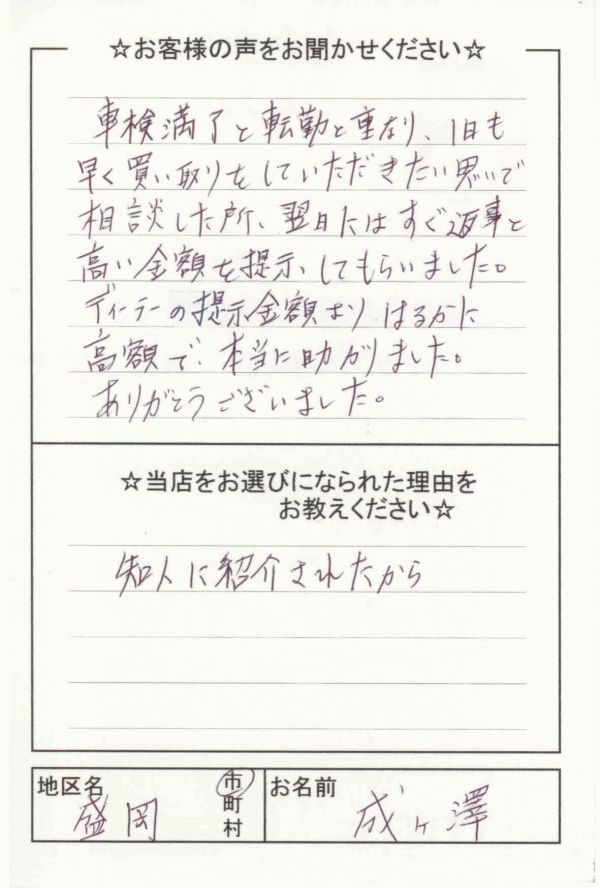 ☆お客様の声をお聞かせください☆
車検満了と転勤と重なり、1日も
早く買い取りをしていただきたい思いで
相談した所、翌日にはすぐ返事と
高い金額を提示してもらいました。
ディーラーの提示金額よりはるかに
高額で、本当に助かりました。
ありがとうございました。
☆当店をお選びになられた理由を
お教えください☆
知人に紹介されたから
地区名 盛岡 市町村
お名前 成ヶ澤